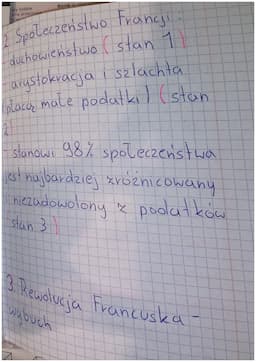 2. Społeczeństwo Francji.
duchowieństwo (stan 1)
arystokracja i szlachta
płacą małe podatki) (stan
2)
- stanowi 98% społeczeństwa
jest najbardziej zróżnicowany
i niezadowolony z podatków
stan 3)
3. Rewolucja Francuska -
wybuch